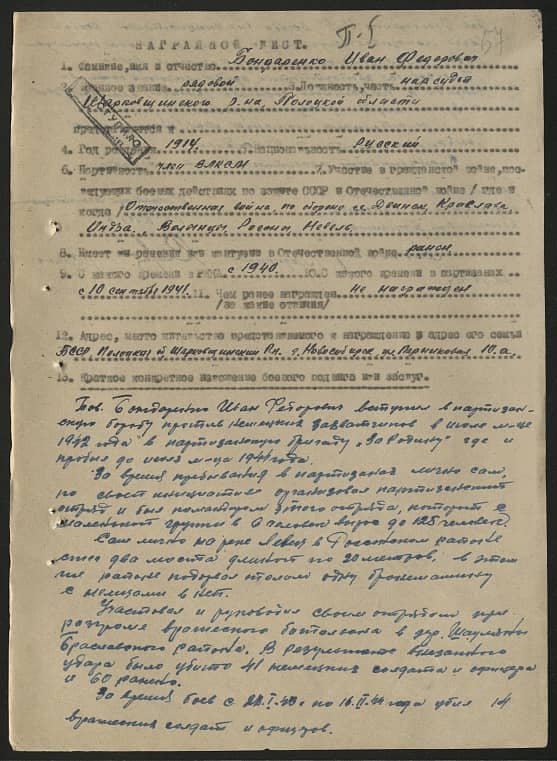 П-5 57
НАГРАДНОЙ ЛИСТ.
1. Фамилия, имя и отчество Бондаренко Иван Федорович
2. Военное звание рядовой 3. Должность, часть нарсудья
Шарковщинского р-на, Полоцкой области
представляется к
4. Год рождения 1914 5. Национальность Русский
6. Партийность член ВЛКСМ 7. Участие в гражданской войне, пос-
ледующих боевых действиях по защите СССР и Отечественной войне /где и
когда/ Отечественная война, по обороне гг. Двинск, Краслава,
Индра, Россица, Невель
8. Имеет ли ранения или контузии в Отечественной войне ранен
9. С какого времени в РККА с 1940. 10. С какого времени в партизанах
с 10 сентября 1941. 11. Чем ранее награжден Не награжден
/за какие отличия/
12. Адрес, место жительство представляемого к награждению и адрес его семьи
БССР Полоцкая Шарковщинский Рн. г. Новосибирск ул. 10.а.
13. Краткое конкретное изложение боевого подвига или заслуг.
Тов. Бондаренко Иван Федорович вступил в партизан-
скую борьбу против немецких захватчиков в июле м-це
1942 года в партизанскую бригаду "За Родину" где и
пробыл до июля м-ца 1944 года.
За время пребывания в партизанах лично сам,
по своей инициативе организовал партизанский
отряд и был этого отряда, который с
маленькой группы в 6 человек вырос до 125 человек.
Сам лично на реке в районе
сжег два моста длиной по 20 метров, в этом
же районе подорвал толом одну бронемашину
с немцами в ней.
Участвовал и руководил своим отрядом при
разгроме вражеского батальона в дер. Шауляны
Браславского района. В результате внезапного
удара было убито 41 немецких солдата и офицера
и 60 ранено.
За время боев с по 16.II.44 года убил 14
вражеских солдат и офицеров.